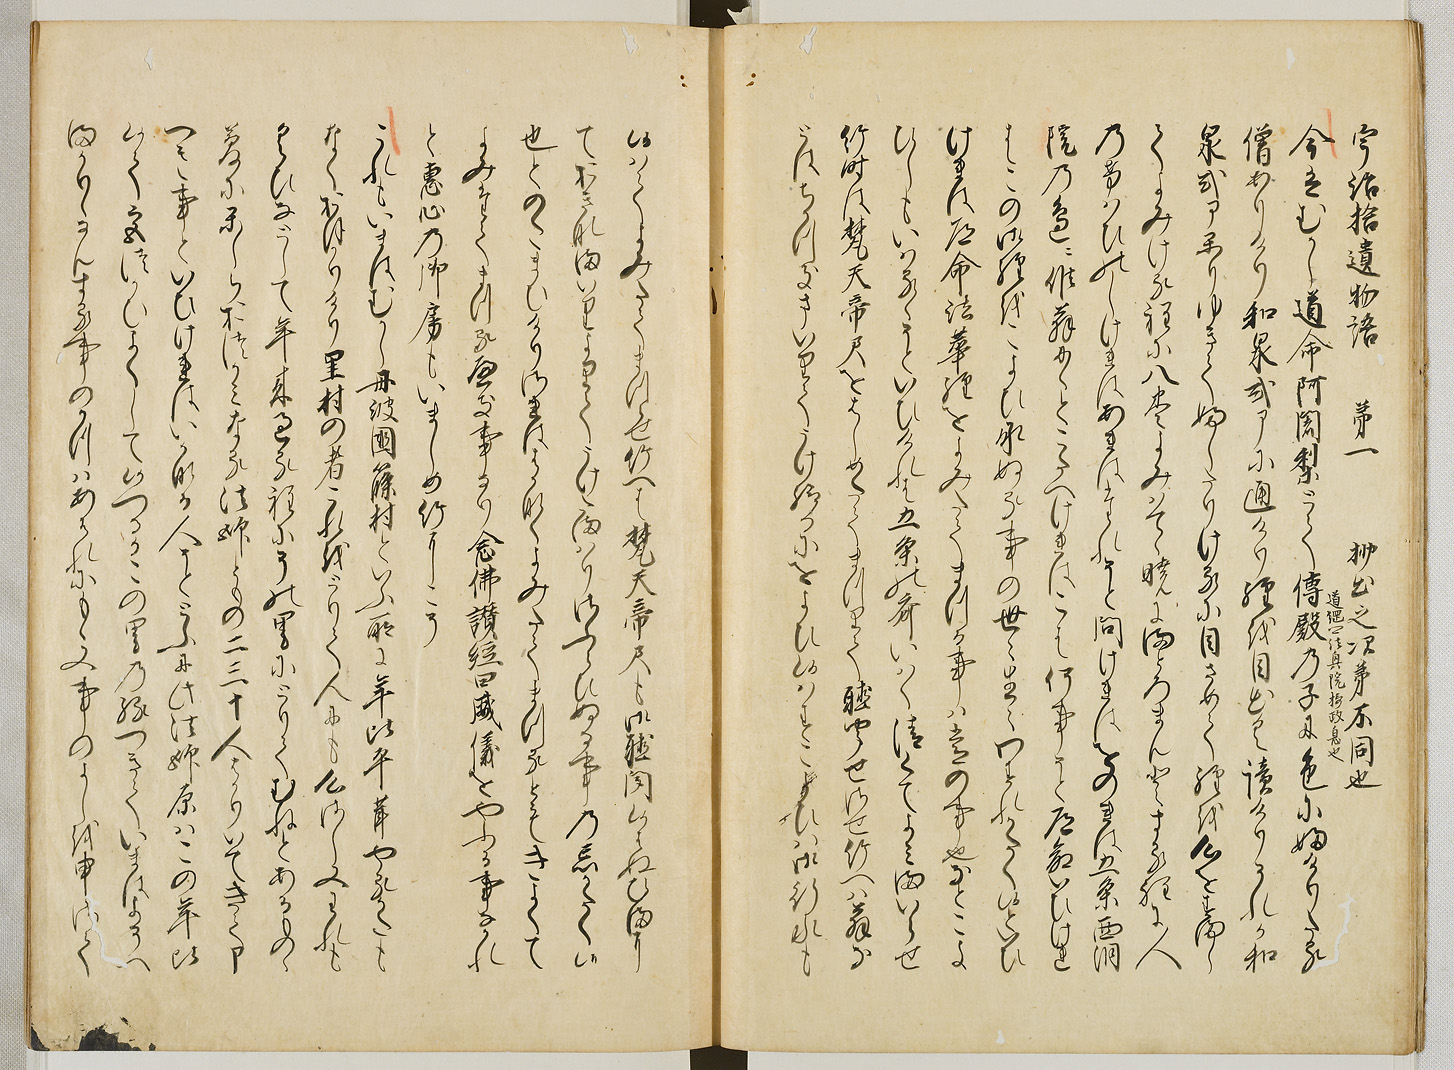 宇治拾遺物語　第一　抄出之次第不同也
今はむかし道命阿闍梨とて傅殿の子に色に婦けりたる
道綱公法興院摂政息也
僧ありけり和泉式部に通けり経を目出く讀けりそれか和
泉式部かりゆきて婦したりけるに目さめて経を心をすまし
てよみける程に八巻よみはてゝ暁にまとろまんとする程に人
のけはひのしけれはあれはたれそと問けれはをのれは五条西洞
院の邊に候翁にてとこたへけれはこは何事そと道命いひけれ
はこの御経をこよひ承ぬる事の世々生々わすれかたく候といひ
けれは道命法華経をよみたてまつる事は常の事也なとこよ
ひしもいはるゝそといひけれは五条の斎いはく清くてよみまいらせ
給時は梵天帝尺をはしめたてまつりて聴聞せさせ給へは翁な
とはちかつきまいりてうけ給るにをよひ候はすこよひは御行水も
候はてよみたてまつらせ給へは梵天帝尺も御聴聞候はぬひまに
ておきなまいりよりてうけ給はりさふらひぬる事の忘かたく候
也とのたまひけりされははかなくよみたてまつるともきよくて
よみたてまつるへき事なり念佛讀経四威儀をやふる事なかれ
と恵心の御房もいましめ給にこそ
これもいまはむかし丹波國篠村といふ所に年比平茸やるかたも
なくおほかりけり里村の者これをとりて人にも心さし又われも
くひなとして年来過る程にその里にとりてむねとあるものゝ
夢にかしらおつかみなる法師ともの二三十人はかりいてきて申
へき事といひけれはいかなる人そととふに此法師原はこの年比
候て宮仕よくして候つるかこの里の縁つきていまはよそへ
まかりなんする事のかつはあはれにもく又事のよしを申さて